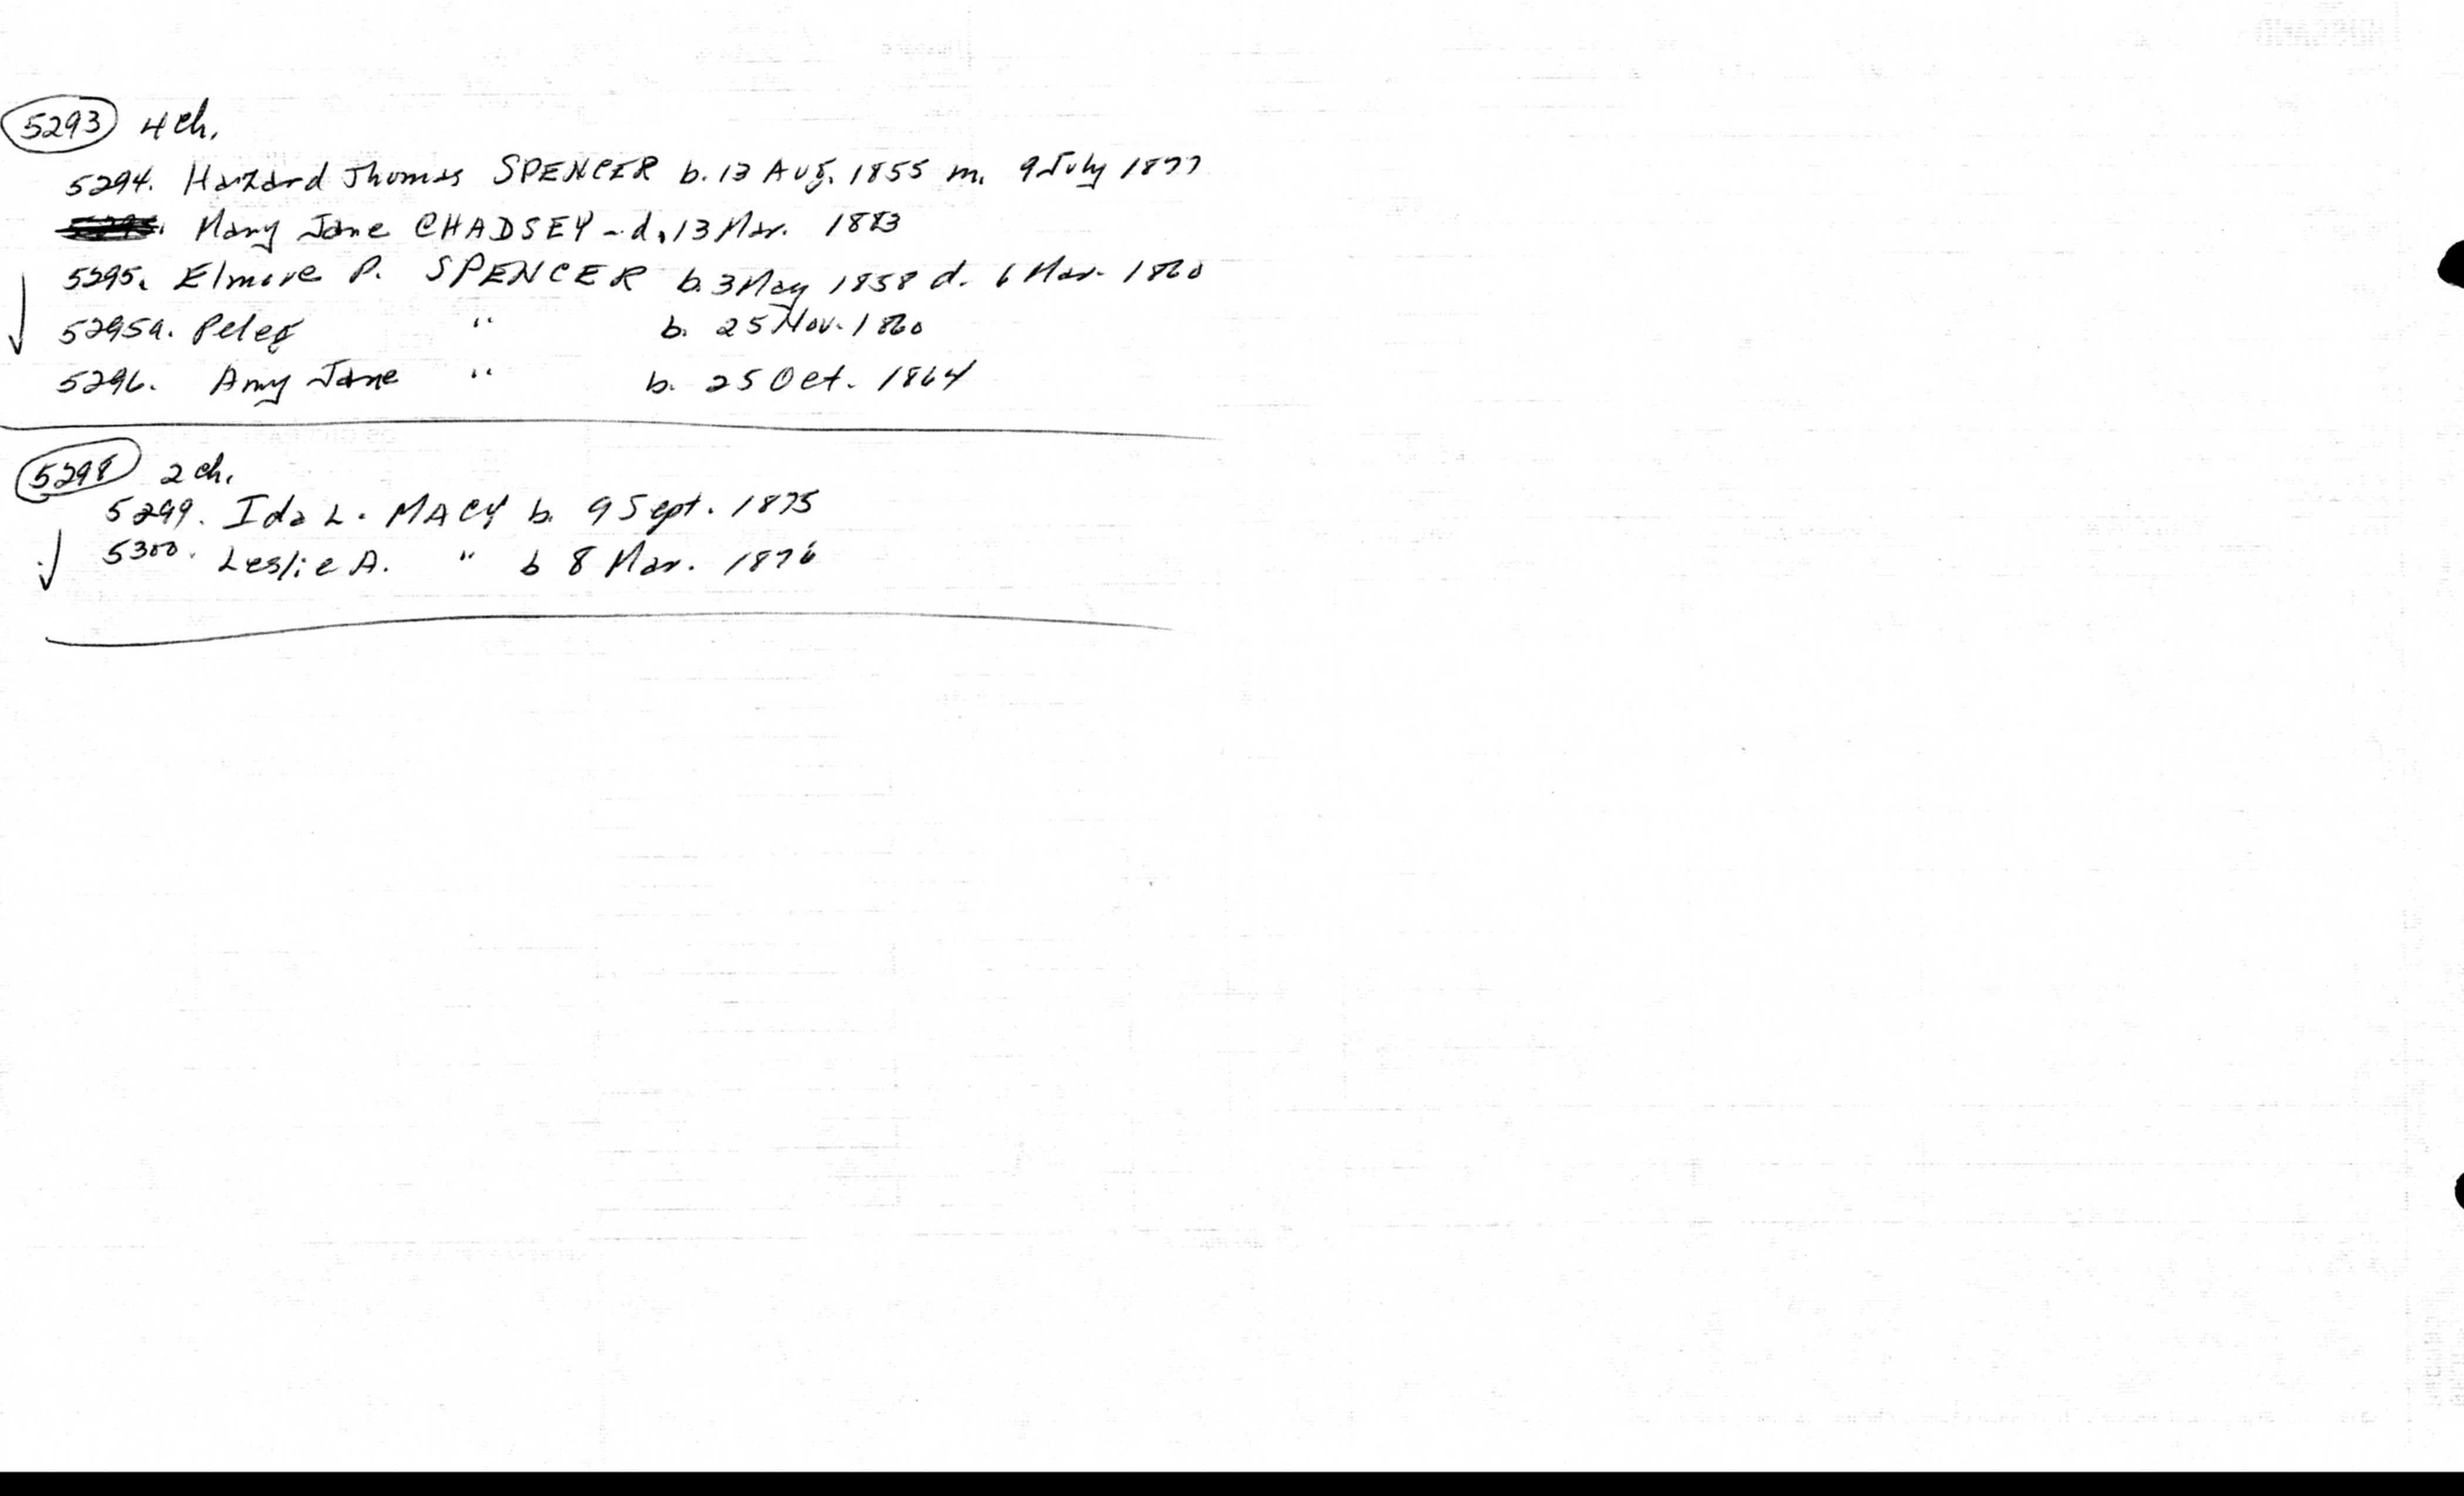 5293 4 ch.
5294. Hazard Thomas SPENCER b. 13 Aug. 1855 m. 9 July 1877
Mary Jane CHADSEY - d. 13 Mar. 1883
5295. Elmore P. SPENCER b. 3 May 1858 d. 6 Mar. 1860
5295a. Peleg " b. 25 Nov. 1860
5296. Amy Jane " b. 25 Oct. 1864
5298 2 ch.
5299. Ida L. MACY b. 9 Sept. 1875
5300. Leslie A. " b 8 Mar. 1876